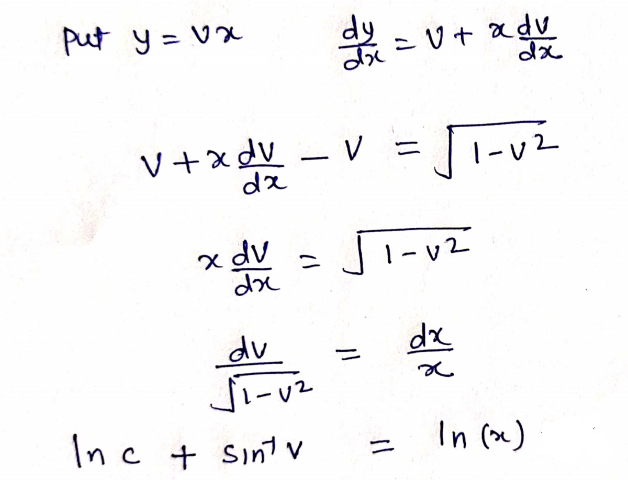 Put y = vx dy/dx = v + x dv/dx
v + x dv/dx – v = √(1-v²)
x dv/dx = √(1-v²)
dv/√(1-v²) = dx/x
ln c + sin⁻¹ v = ln (x)